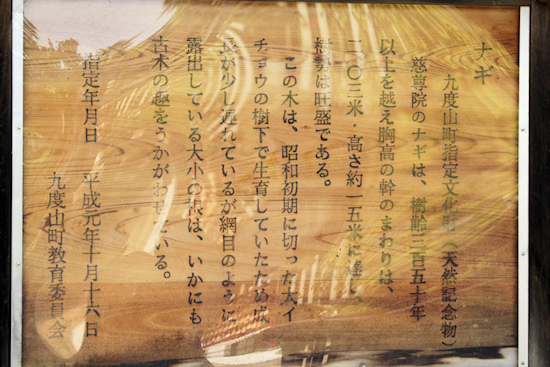 ナギ
九度山町指定文化財(天然記念物)
慈尊院のナギは、樹齢二百五十年
以上を越え胸高の幹のまわりは、
二・〇三米・高さ約一五米に達し、
樹勢は旺盛である。
この木は、昭和初期に切った大イ
チョウの樹下で生育していたため成
長が少し遅れているが網目のように
露出している大小の根は、いかにも
古木の趣をうかがわせている。
指定年月日 平成元年十月十六日
九度山町教育委員会